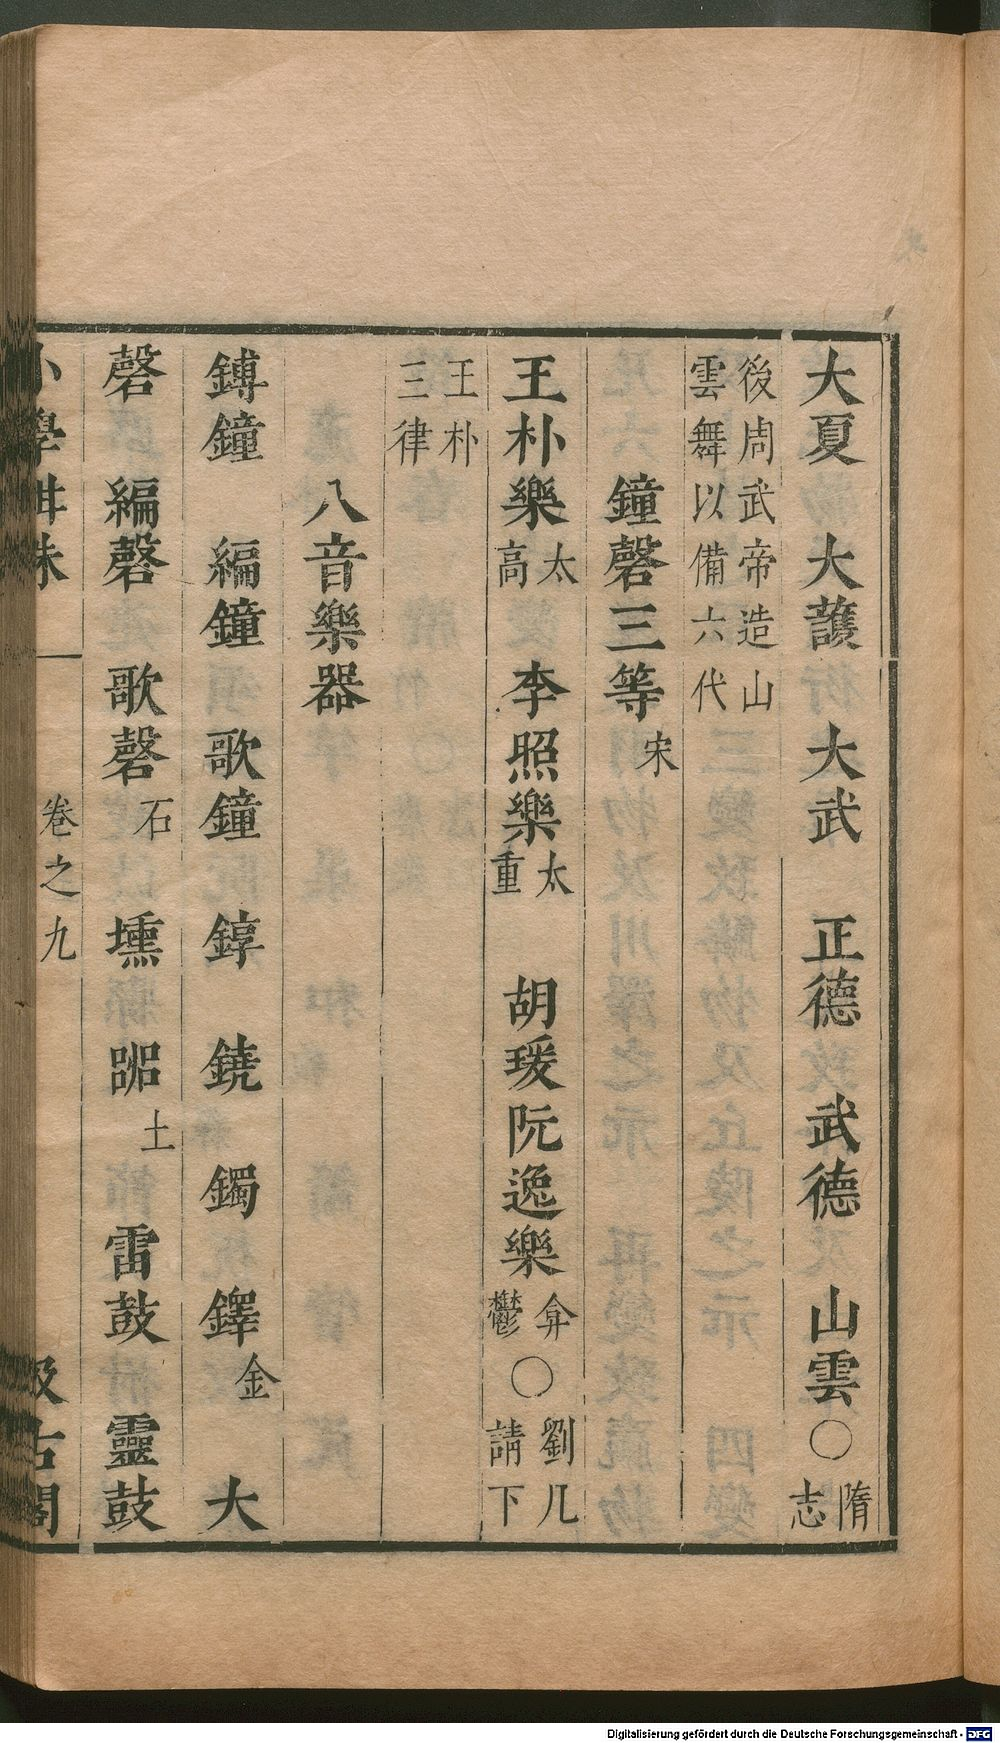 大夏　大護　大武　正德　武德　山雲○隋志
後周武帝造山雲舞以備六代
鐘磬三等宋
王朴樂太高　李照樂太重　胡瑗阮逸樂弇鬱○劉几請下
王朴三律
八音樂器
鎛鐘　編鐘　歌鐘　錞　鐃　鐲　鐸金　大
磬　編磬　歌磬石　壎　㗊土　雷鼓　靈鼓
小學紺珠　卷之九　汲古閣
Digitalisierung gefördert durch die Deutsche Forschungsgemeinschaft - DFG